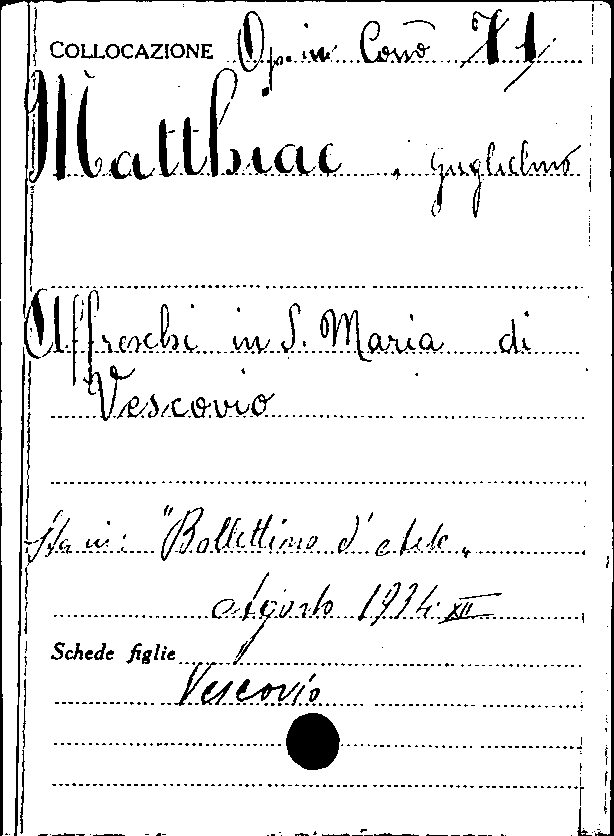 COLLOCAZIONE Op. in Conso
Matthiae, Guglielmo
Affreschi in S. Maria di
Vescovio
Sta in: "Bollettino d'Arte"
Agosto 1934 XII
Schede figlie
Vescovio